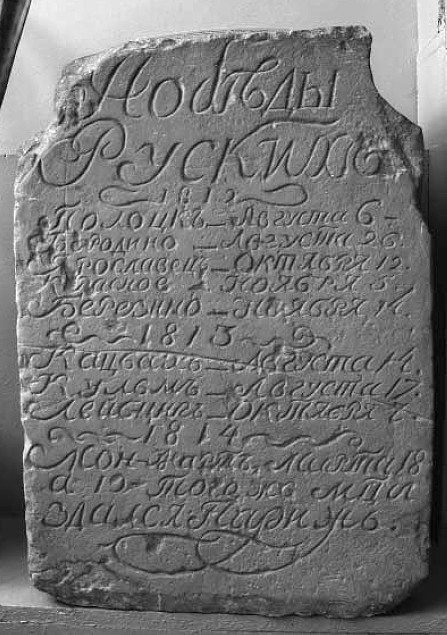 Побѣды
Рускихъ
1812
Полоцкъ — Августа 6 –
Бородино — Августа 26.
Ярославецъ — Октября 12.
Ноября 5.
Березино — Ноября 14.
1813
Кацбахъ — Августа 14.
Кульмъ — Августа 17.
Лейпцигъ — Октября
1814
Марта 18
а 19 того жъ
здался Парижъ.